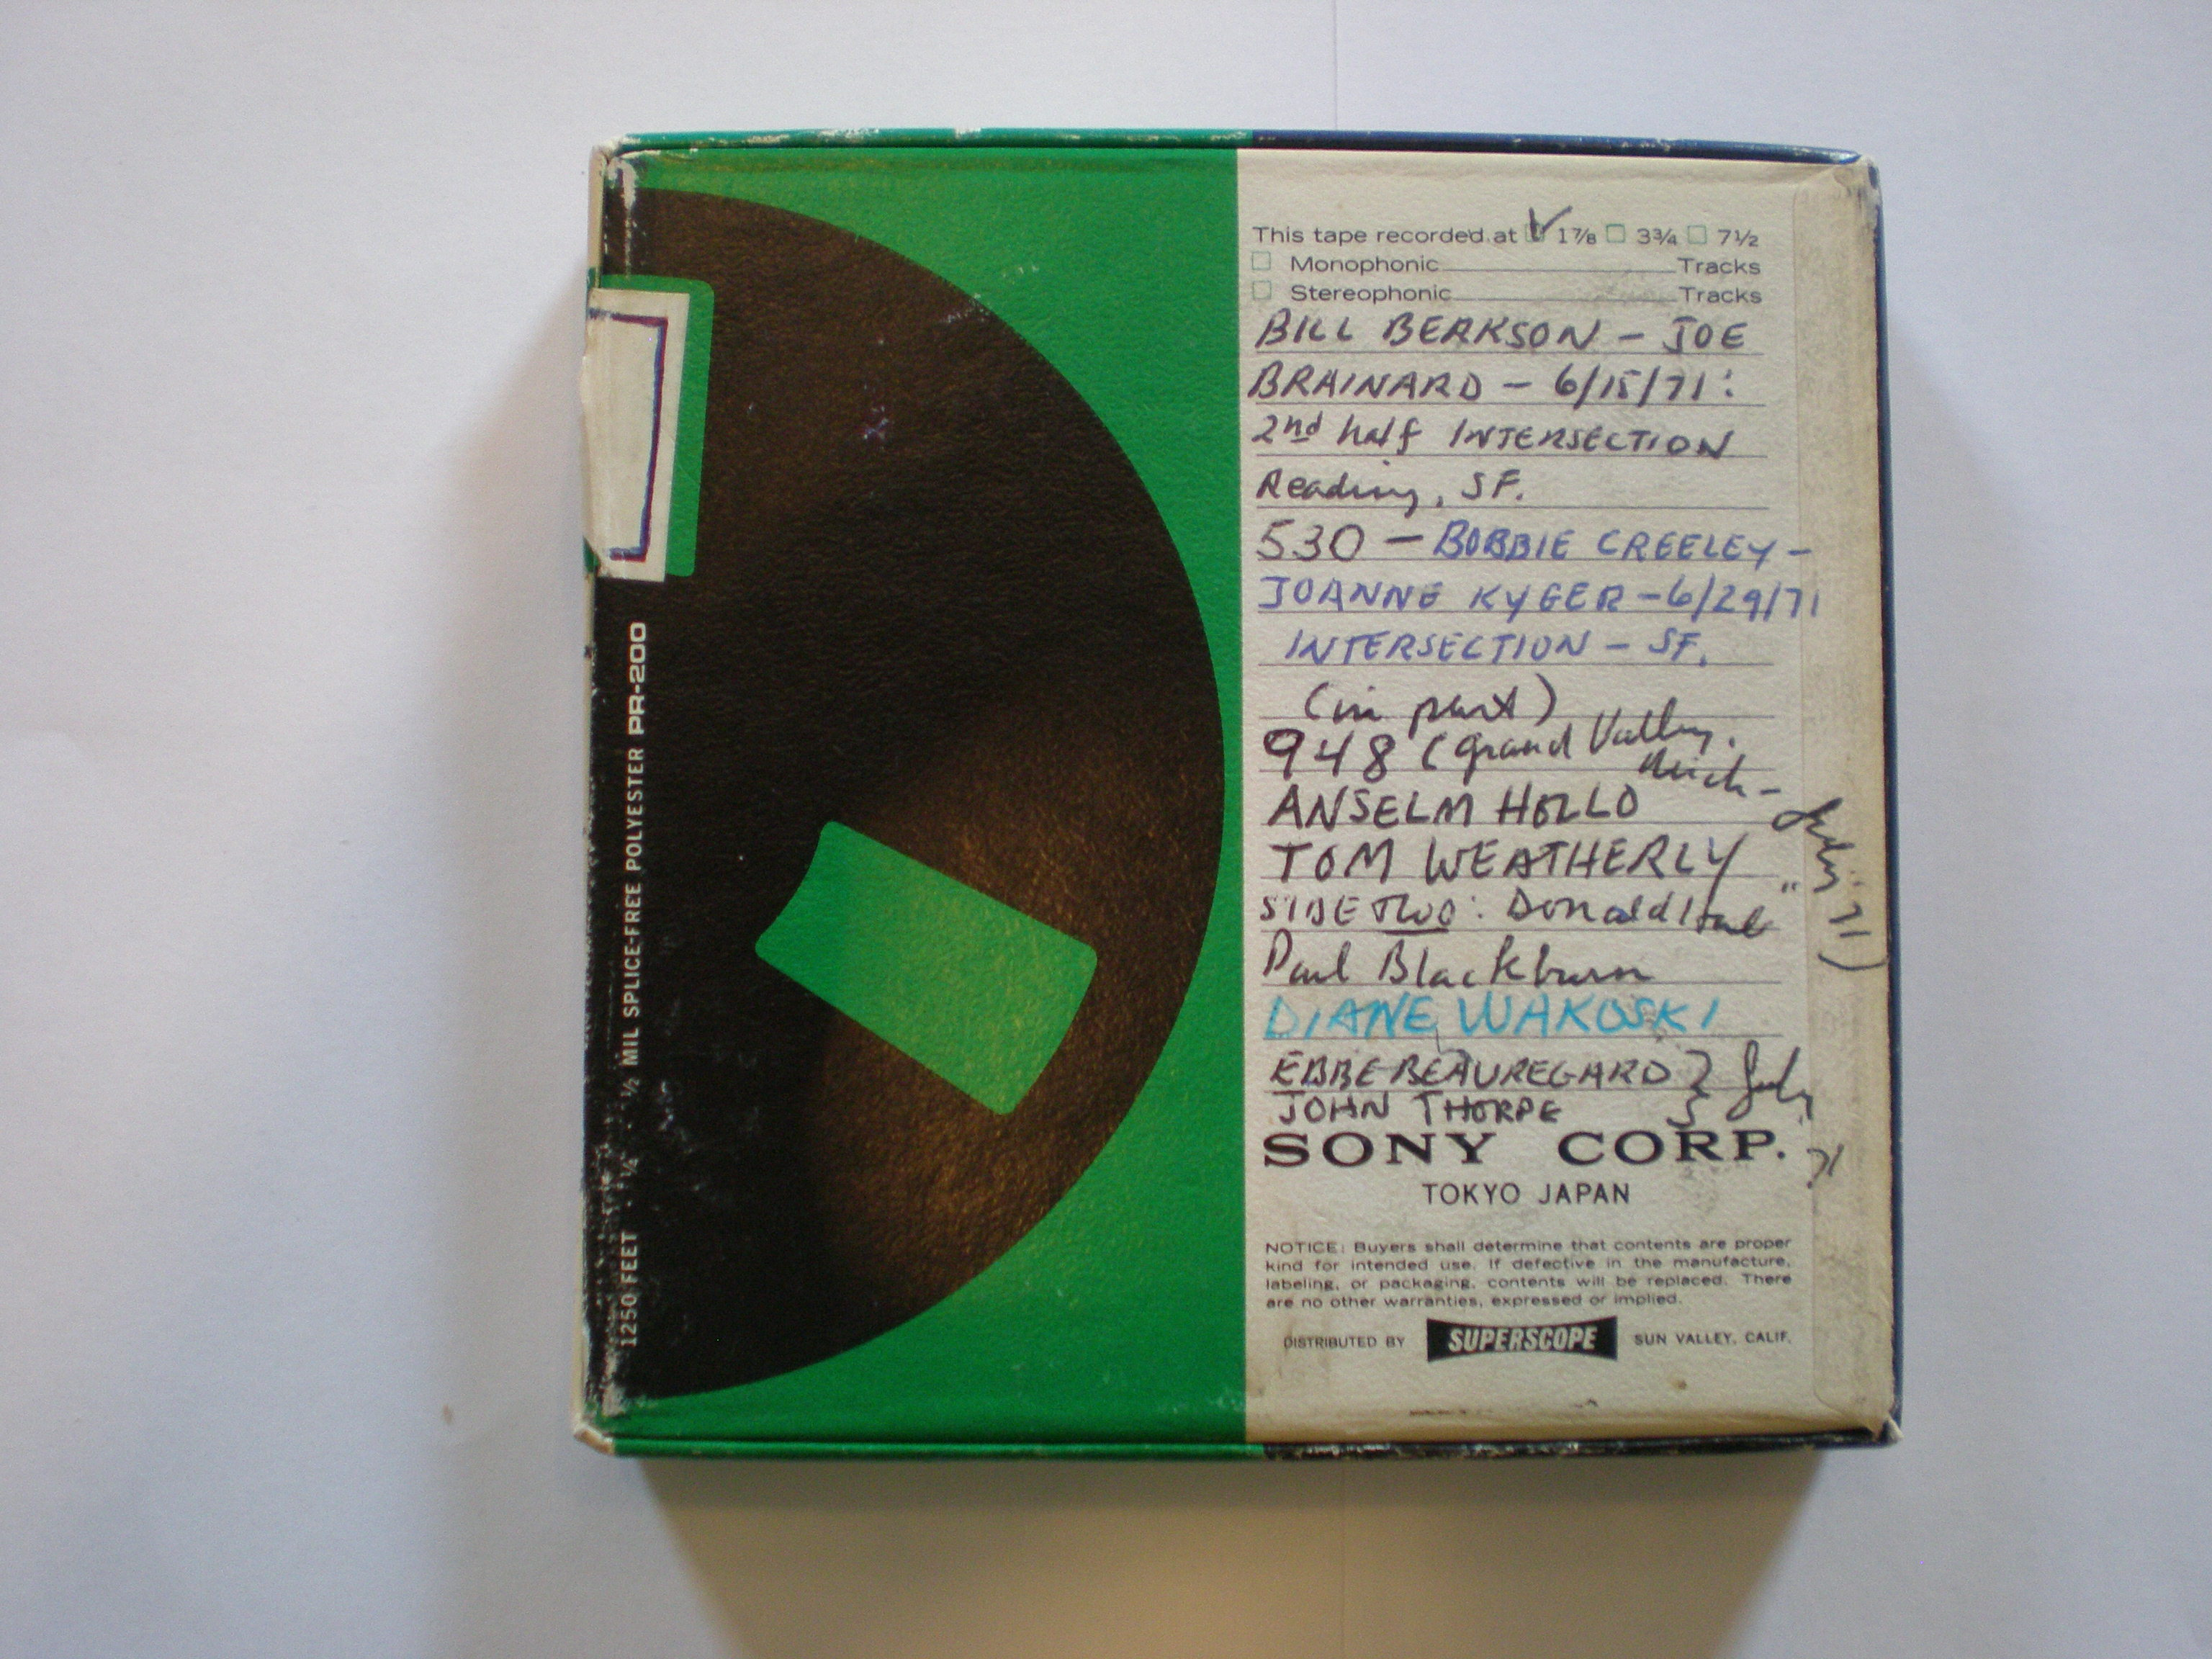 This tape recorded at 1⅞ 3¾ 7½
Monophonic Tracks
Stereophonic Tracks
BILL BERKSON - JOE
BRAINARD - 6/15/71:
2nd half INTERSECTION
Reading, SF.
530 - BOBBIE CREELEY -
JOANNE KYGER - 6/29/71
INTERSECTION - SF.
(in part)
948 (Grand Valley,
Mich -
July '71)
ANSELM HOLLO
TOM WEATHERLY "
SIDE TWO: Donald Hall
Paul Blackburn
DIANE WAKOSKI
EBBE BEAUREGARD } July
JOHN THORPE
71
SONY CORP.
TOKYO JAPAN
NOTICE: Buyers shall determine that contents are proper
kind for intended use. If defective in the manufacture,
labeling, or packaging, contents will be replaced. There
are no other warranties, expressed or implied.
DISTRIBUTED BY SUPERSCOPE SUN VALLEY, CALIF.
1250 FEET · ¼" · ½ MIL SPLICE-FREE POLYESTER PR-200